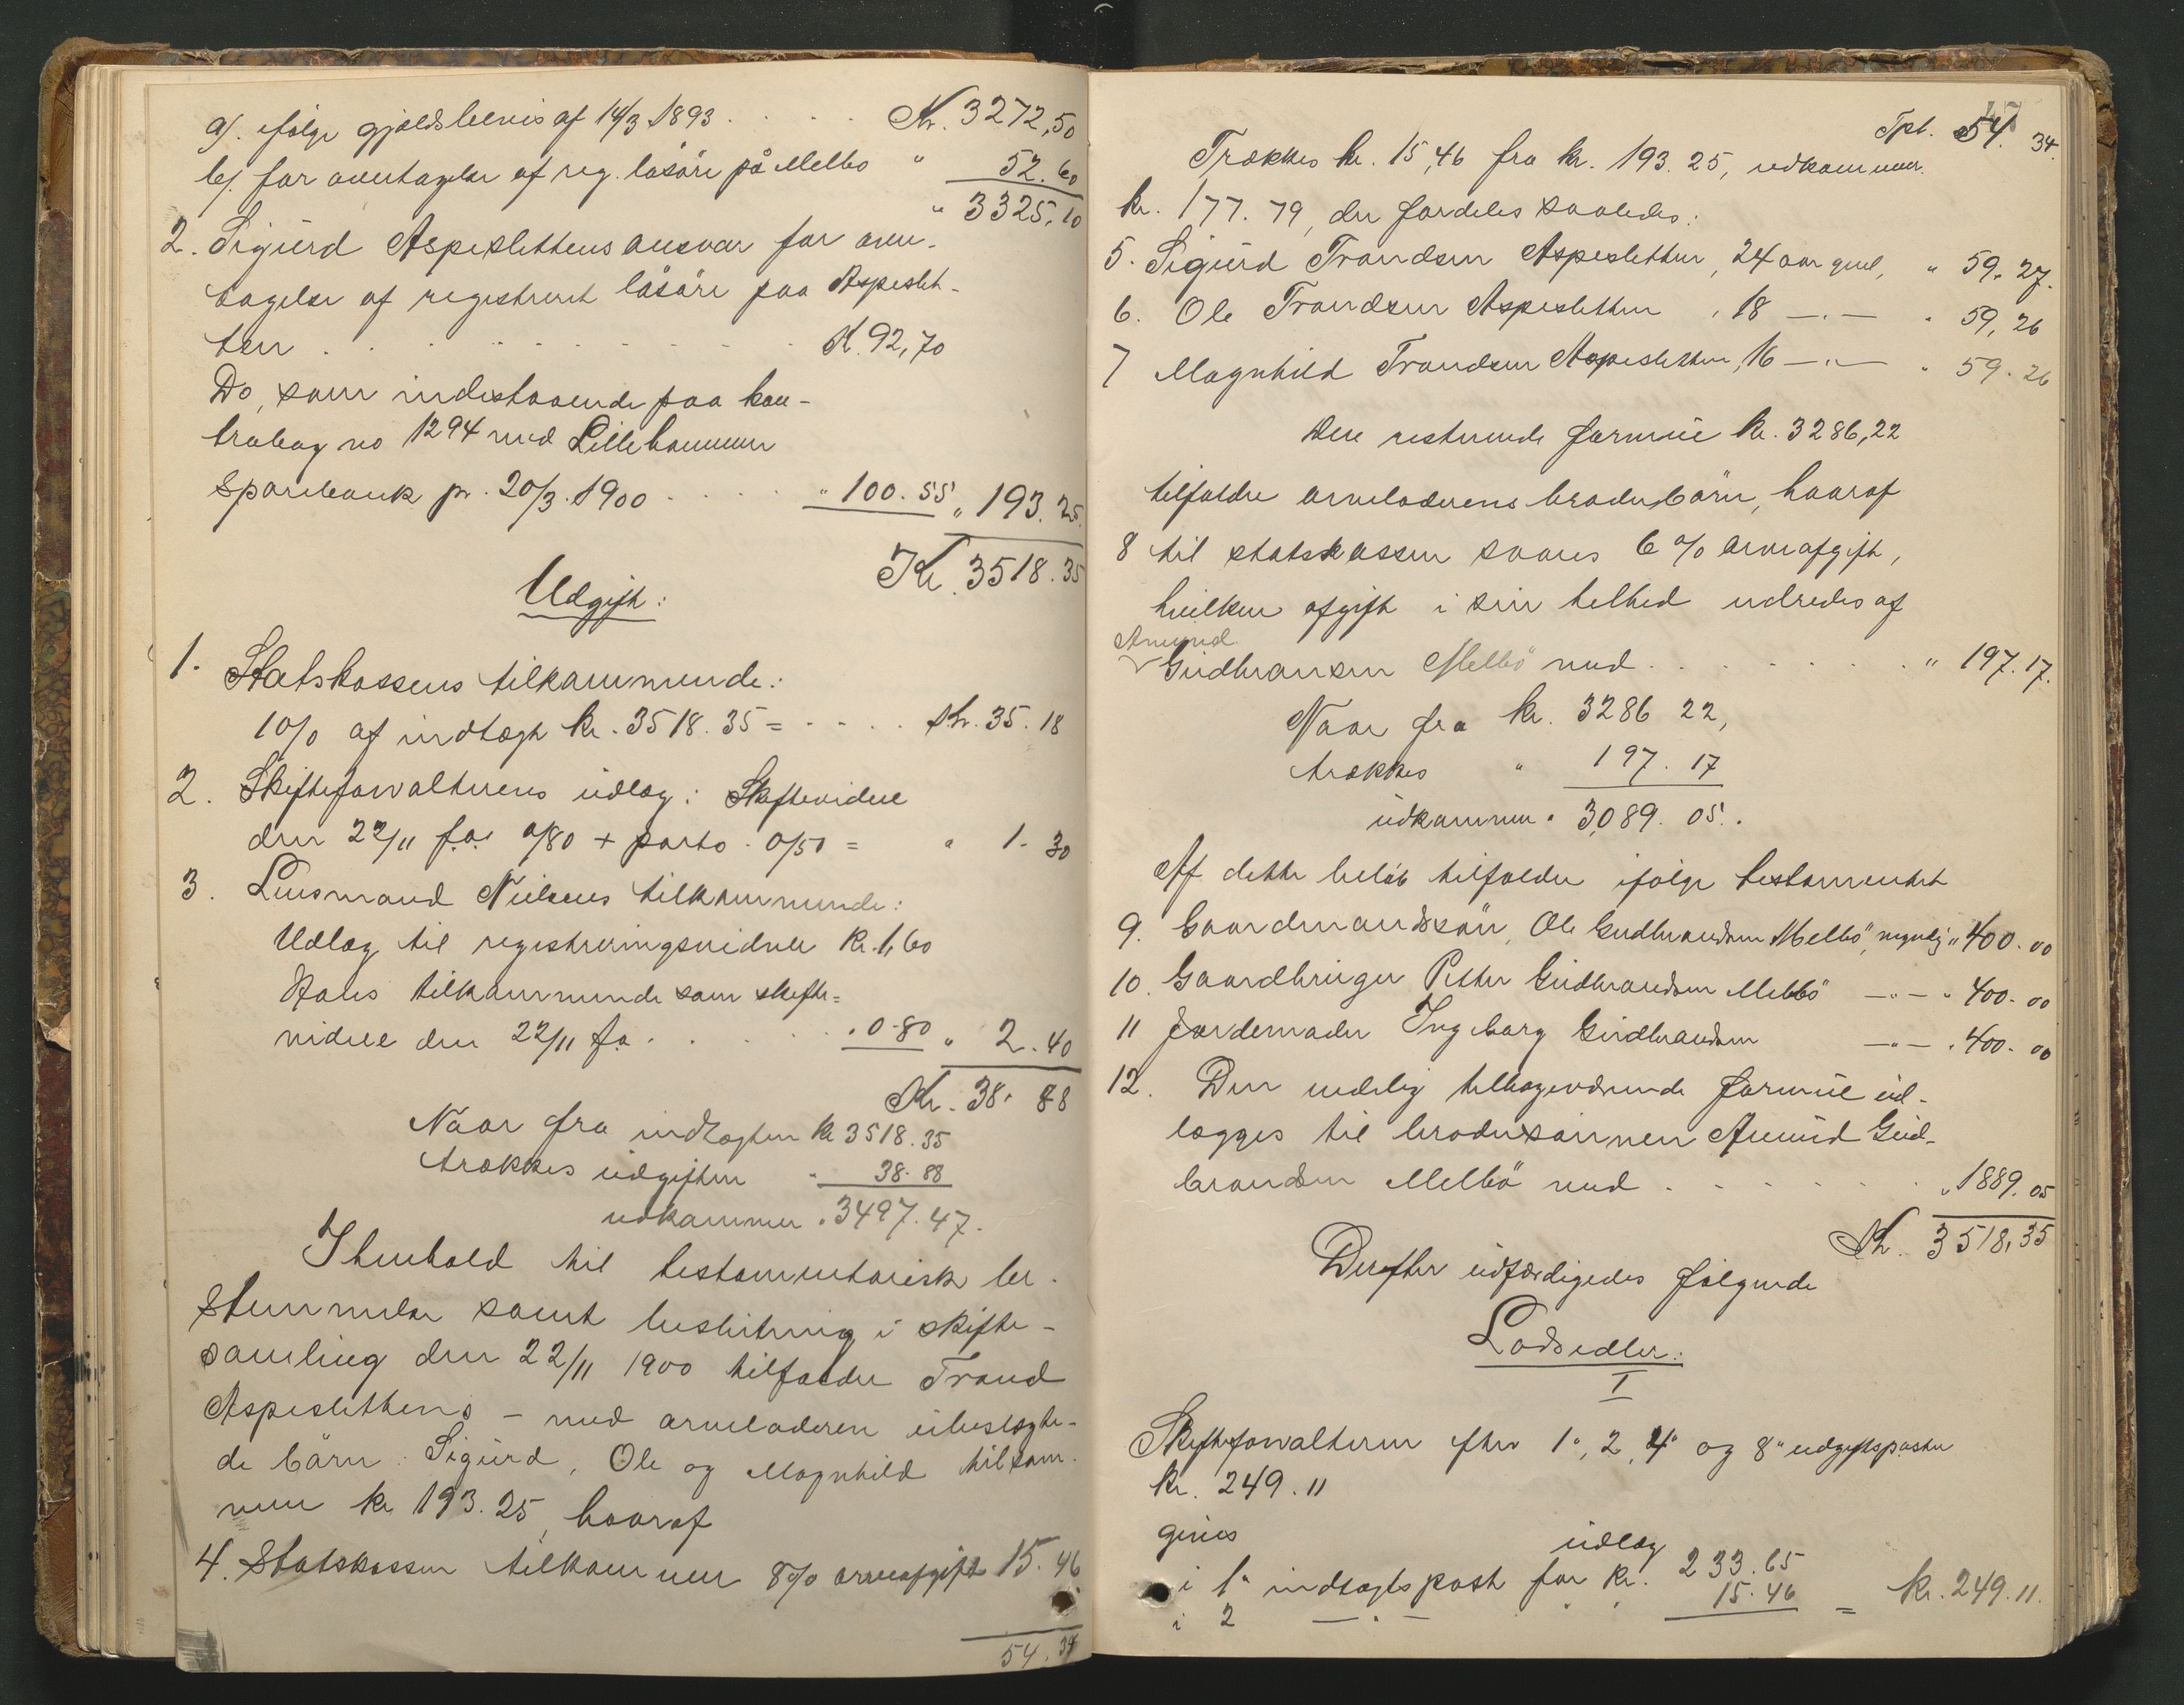 a). ifølge gjældsbevis af 14/3 1893 . . . . Kr. 3272,50
b). for overtagelse af reg. løsøre på Melbö " 52.60
" 3325,10
2. Sigurd Aspeslettens ansvar for over-
tagelse af registreret løsöre paa Aspeslet-
ten . . . . . . . . . . K. 92,70
Do, som indestaaende paa kon-
trabog no 1294 med Lillehammer
Sparebank pr. 20/3. 1900 . . . . . " 100.55 " 193.25.
Kr. 3518.35
Udgift:
1. Statskassens tilkommende:
1 0/0 af indtægt kr. 3518.35 = . . . . kr. 35.18
2. Skifteforvalterens udlæg: Skiftevidne
den 22/11 f.a. 0/80 + porto 0/50 = " 1.30
3. Lensmand Nielsens tilkommende:
Udlæg til registreringsvidner kr. 1,60
Hans tilkommende som skifte=
vidne den 22/11 f.a. . . . . " 0.80 " 2.40
Kr. 38.88
Naar fra indtægten kr 3518.35
trækkes udgiften " 38.88
udkommer " 3497.47.
I henhold til testamentarisk be-
stemmelse samt beslutning i skifte-
samling den 22/11 1900 tilfalder Trond
Aspeslettens – med arveladeren ubeslægte-
de börn: Sigurd, Ole og Magnhild tilsam-
men kr 193.25, hvoraf
4. Statskassen tilkommer 8 0/0 arveafgift 15.46
54.34
47
Tpt. 54. 34.
Trækkes kr. 15,46 fra kr. 193.25, udkommer
kr. 177.79, der fordeles saaledes:
5. Sigurd Trondsen Aspesletten, 24 aar gml, " 59.27.
6. Ole Trondsen Aspesletten , 18 —"— " 59,26
7 Magnhild Trondsen Aspesletten, 16 —"— " 59.26
Den resterende formue kr. 3286,22
tilfalder arveladerens broderbörn, hvoraf
8 til statskassen svares 6 0/0 arveafgift,
hvilken afgift i sin helhed udredes af
Amund
Gudbransen Melbö med . . . . . . . . " 197.17.
Naar fra kr. 3286 22,
trækkes " 197.17
udkommer " 3089.05.
Af dette belöb tilfalder ifölge testamentet
9. Gaardmandssön, Ole Gudbrandsen Melbö, myndig " 400.00
10. Gaardbruger Petter Gudbrandsen Melbö —"— " 400.00
11 Jordemoder Ingeborg Gudbrandsen —"— " 400.00
12. Den endelig tilbageværende formue ud-
lægges til brodersönnen Amund Gud-
brandsen Melbö med . . . . . . " 1889.05
Kr. 3518,35
Derefter udfærdigedes fölgende
Lodsedler:
I
Skifteforvalteren efter 1", 2, 4" og 8" udgiftsposter
kr. 249.11
gives udlæg
i 1" indtægts post for kr. 233.65
i 2 —"— " " 15.46 = kr. 249.11.